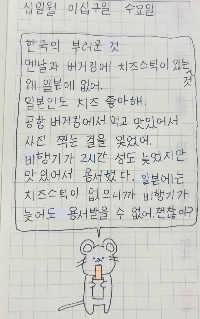 십일월 이십구일 수요일
한국의 부러운 것
맨날과 버거킹에 치즈스틱이 있는 것
왜 일본에 없어.
일본인도 치즈 좋아해.
공항 버거킹에서 먹고 맛있어서
사진 찍는 걸을 잊었어.
비행기가 2시간 정도 늦었지만
맛있어서 용서했다. 일본에는
치즈스틱이 없으니까 비행기가
늦어도 용서받을 수 없어. 괜찮아?